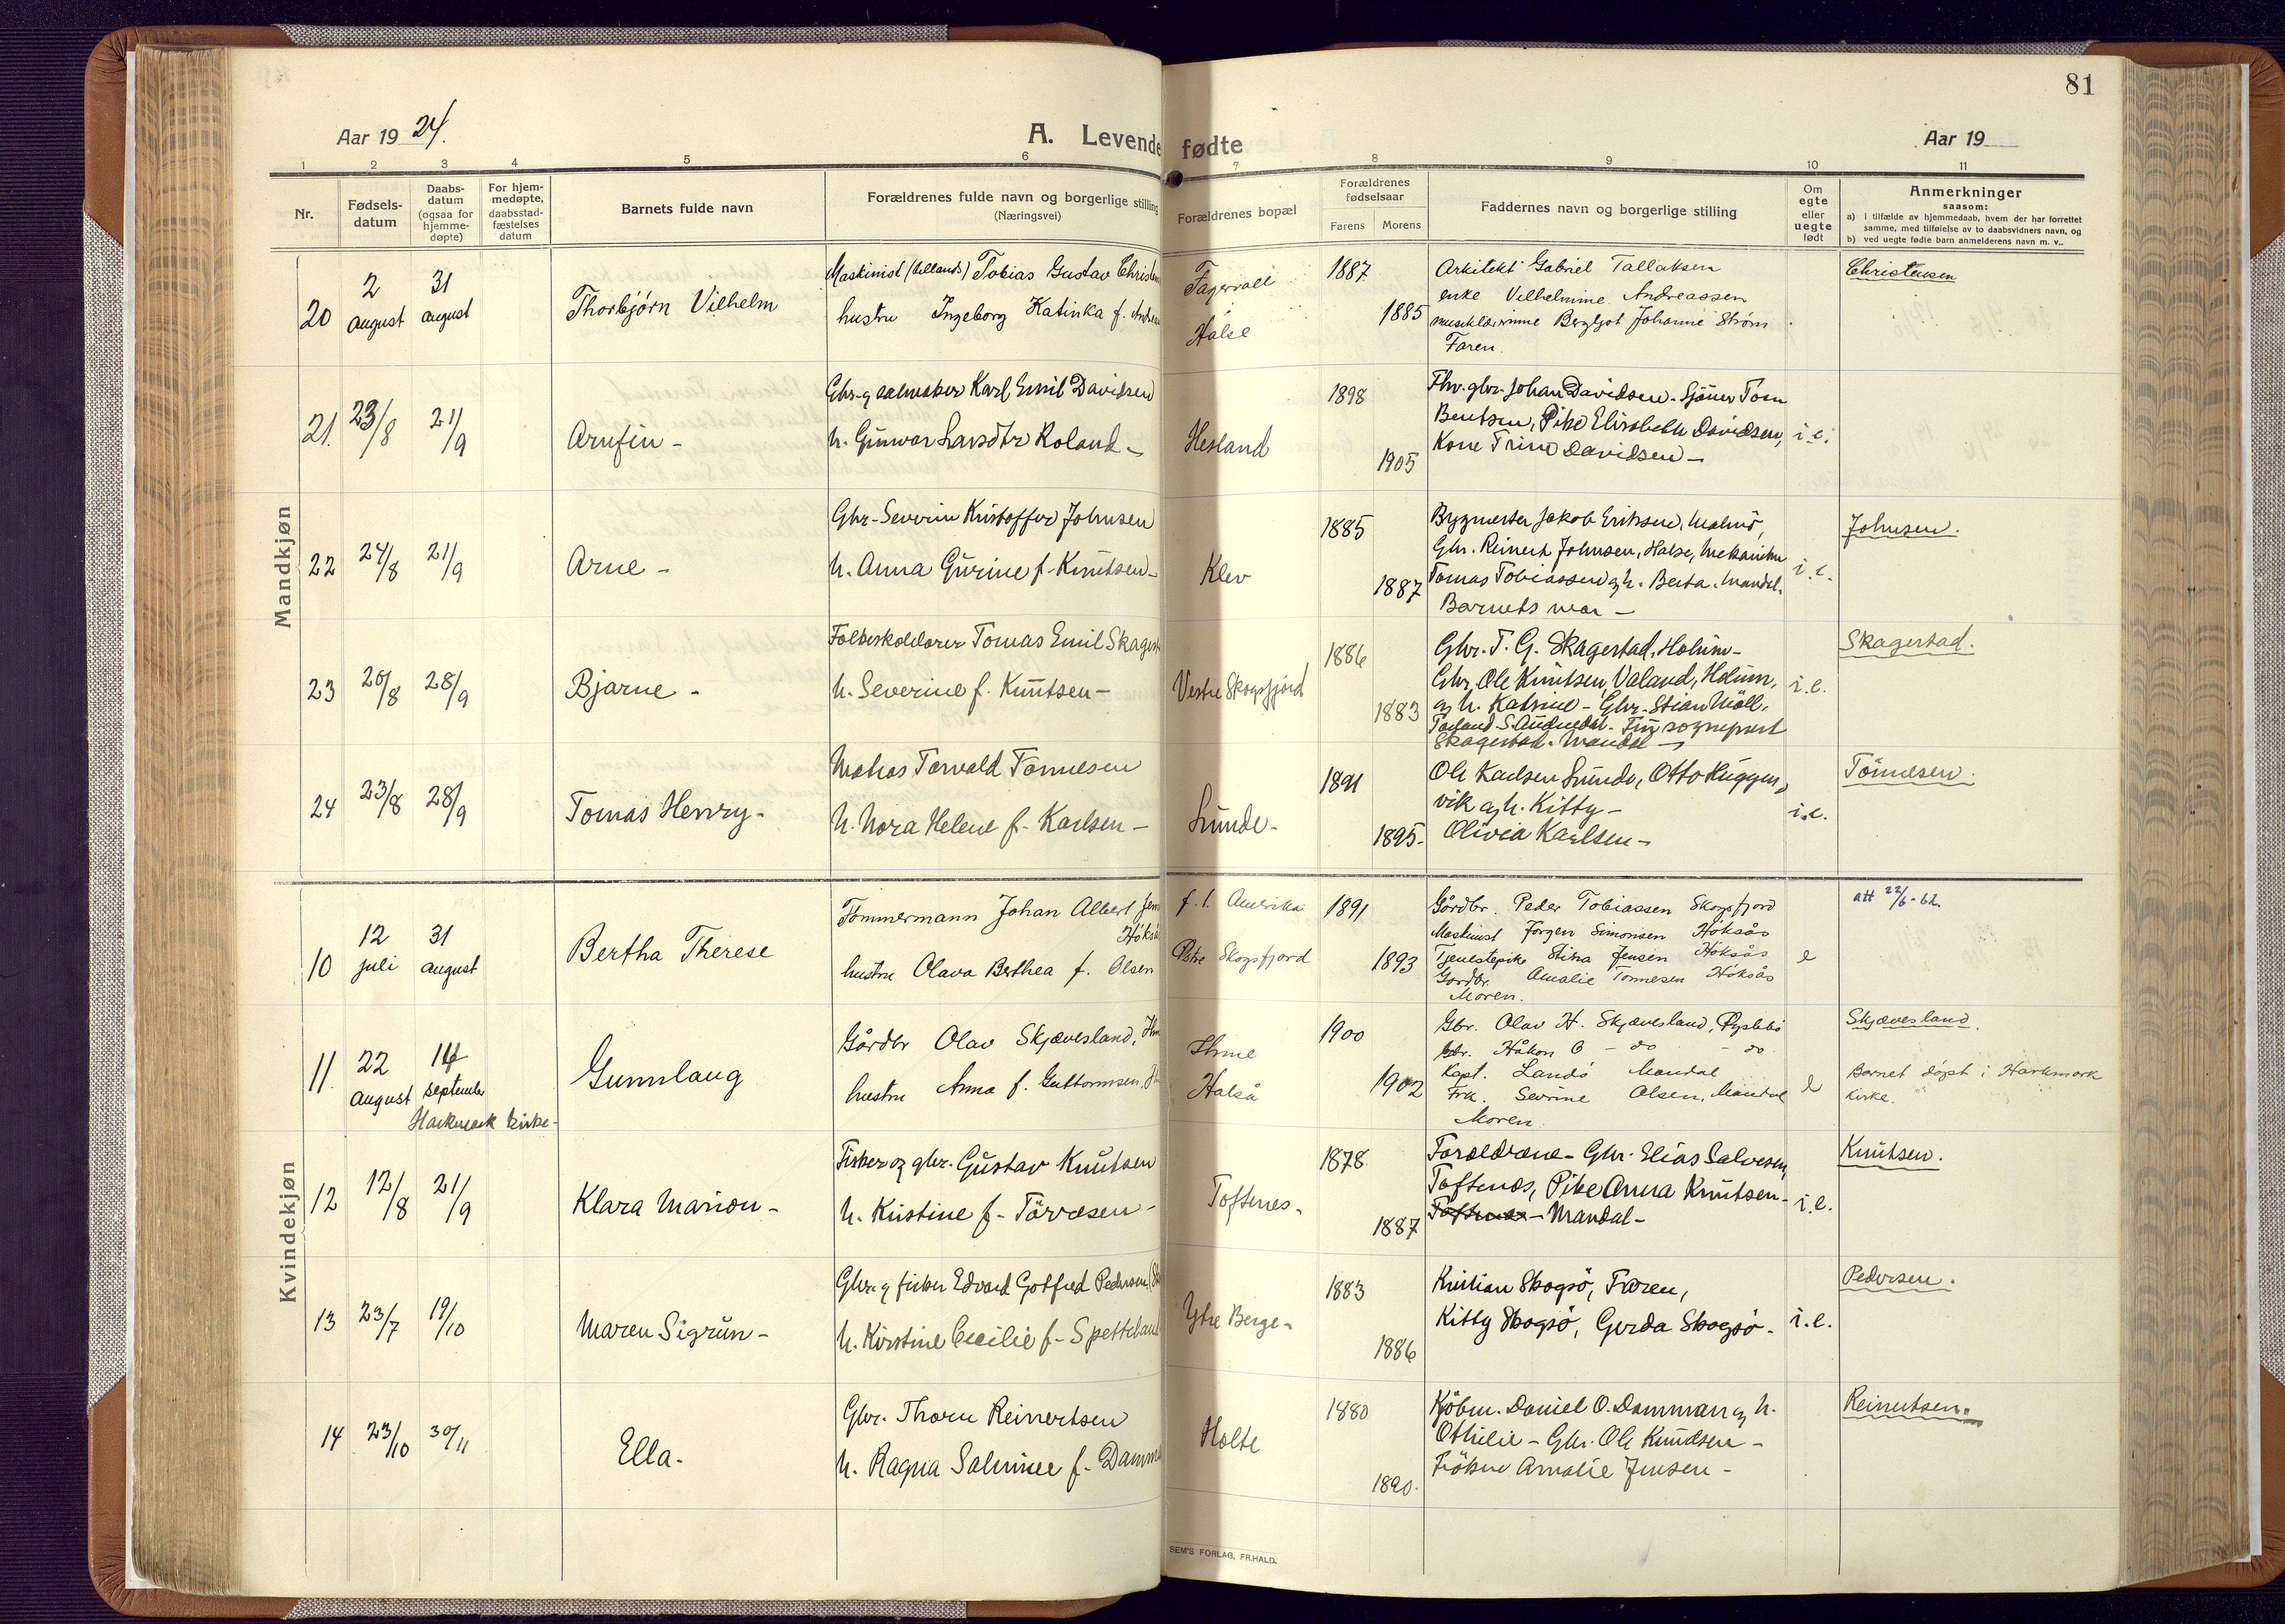 81
Aar 19 24.
A. Levende fødte
Aar 19
1 2 3 4 5 6 7 8 9 10 11
Nr.
Fødsels-
datum
Daabs-
datum
(ogsaa for
hjemme-
døpte)
For hjem-
medøpte,
daabsstad-
fæstelses
datum
Barnets fulde navn
Forældrenes fulde navn og borgerlige stilling
(Næringsvei)
Forældrenes bopæl
Forældrenes
fødselsaar
Farens Morens
Faddernes navn og borgerlige stilling
Om
egte
eller
uegte
født
Anmerkninger
saasom:
a) i tilfælde av hjemmedaab, hvem der har forrettet
samme, med tilføielse av to daabsvidners navn, og
b) ved uegte fødte barn anmelderens navn m. v..
Mandkjøn
20
2
august
31
august
Thorbjørn Vilhelm
Maskinist Tobias Gustav
hustru Ingeborg Katinka f.
Halse
1887
1885
Arkitekt Gabriel Tallaksen
enke Vilhelmine Andreassen
Bergljot Johanne Strøm
Faren.
Christensen
21.
23/8
21/9
Arnfin -
Gbr. og salmaker Karl Emil Davidsen
h. Gunvor Larsdtr Roland -
Hesland
1898
1905
Fhv. gbr. Johan Davidsen. Sjömr Tom
Bentsen, Pike Elisabeth Davidsen,
Kone Trine Davidsen -
i.e.
22
24/8
21/9
Arne -
Gbr. Severin Kristoffer Johnsen
h. Anna Gurine f. Knutsen -
Klev
1885
1887
Bygmester Jakob Eriksen, Malmö,
Gbr. Reinert Johnsen, Halse, Mekaniker
Tomas Tobiassen og h. Berta. Mandal.
Barnets mor -
i.e.
Johnsen.
23
28/9
Bjarne -
Tomas Emil
h. Severine f. Knutsen -
Vestre Skogsfjord
1886
1883
Gbr. T. G. Skagestad, Holum -
Gbr. Ole Knutsen, Valand, Holum,
og h. Katrine - Gbr. Stian Möll,
S. Audnedal. sogneprest
Skagestad. Mandal -
i.e.
Skagestad.
24
23/8
28/9
Tomas Henry -
Matros Torvald Tønnesen
h. Nora Helene f. Karlsen -
Lunde -
1891
1895.
Ole Karlsen Lunde, Otto Huggen-
vik og h. Kitty -
Olivia Karlsen -
i.e.
Tönnesen.
Kvindekjøn
10
12
juli
31
august
Bertha Therese
Tømmermann Johan Albert
hustru Olava Berthea f. Olsen
f. t. Amerika
Skogsfjord
1891
1893
Gårdbr. Peder Tobiassen Skogsfjord
Maskinist Jørgen Simonsen Höksås
Tjenestepike Stina Jensen Höksås
Gårdbr. Amalie Tønnesen Höksås
Moren.
e
att 22/6-62.
11.
22
august
14
september
Harkmark kirke -
Gunnlaug
Gårdbr Olav Skjævesland,
hustru Anna f. Guttormsen,
Ihme
Halså
1900
1902
Gbr. Olav H. Skjævesland,
Gbr. Håkon O - do - do
Kapt. Landö Mandal
Frk. Sevrine Olsen, Mandal
Moren
e
Skjævesland.
Barnet döpt i Harkmark
kirke.
12
12/8
21/9
Klara Marion -
Fisker og gbr. Gustav Knutsen
h. Kristine f. -
Toftenes.
1878
1887
Foreldrene - Gbr. Elias Salvesen,
Toftenes, Pike Anna Knutsen -
Mandal -
i.e.
Knutsen.
13
23/7
19/10
Maren Sigrun -
Gbr. og fisker Edvard Gotfred Pedersen
h. Kirstine Cecilie f. Spetteland
Ytre Berge -
1883
1886
Kristian Skogsö, Faren,
Kitty Skogsö, Gerda Skogsö -
i.e.
Pedersen.
14
23/10
30/11
Ella.
Gbr. Thorn Reinertsen
h. Ragna Salmine f.
Holte
1880
1890.
Kjöbm. Daniel O. Damman og h.
Othilie - Gbr. Ole Knudsen -
Fröken Amalie Jensen -
Reinertsen.
SEM'S FORLAG, FR.HALD.